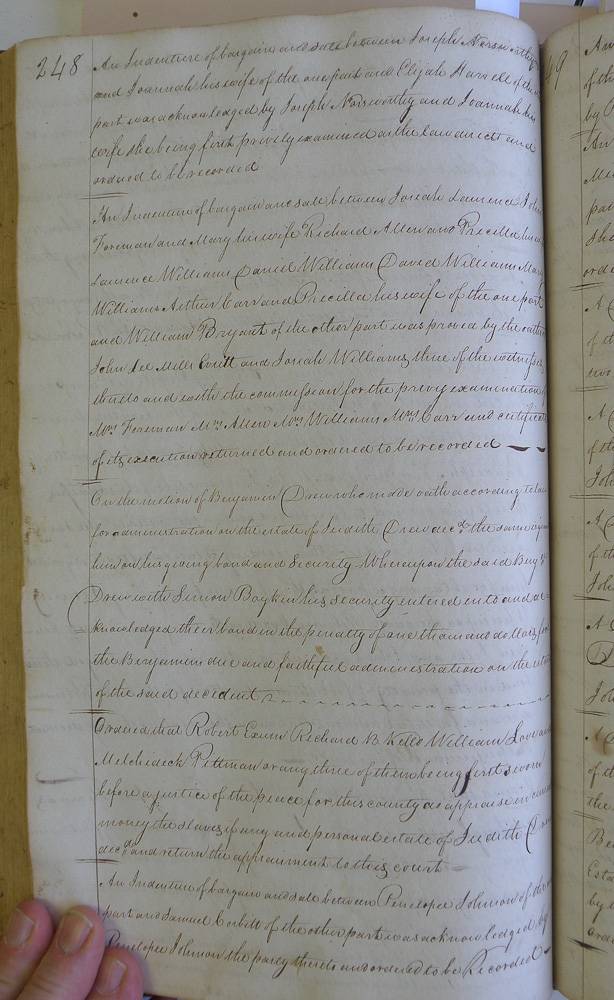 248
An Indenture of bargain and sale between Joseph Norsworthy
and Joannah his wife of the one part and Elijah Harrell of the
part was acknowledged by Joseph Norsworthy and Joannah his
wife she being first privily examined as the law directs and
ordered to be recorded
An Indenture of bargain and sale between Josiah Laurence John
Foreman and Mary his wife Richard Allen and Priscilla his
Laurence Williams Daniel Williams David Williams Mary
Williams Arthur Carr and Priscilla his wife of the one part
and William Bryant of the other part was proved by the oaths
John Lee Mills Everitt and Josiah Williams three of the witnesses
thereto and with the commission for the privy examination
Mrs Foreman Mrs Allen Mrs Williams Mrs Carr and certificate
of its execution returned and ordered to be recorded
On the motion of Benjamin Drew who made oath according to law
for administration on the estate of Judith Drew decd. the same is
him on his giving bond and Security Whereupon the said Benj
Drew with Simon Boykin his security entered into and ac
knowledged their bond in the penalty of one thousand dollars for
the Benjamins due and faithful administration on the estate
of the said decedent
Ordered that Robert Exum Richard B Kello William Love and
Melchideck Pittman or any three of them being first sworn
before a justice of the peace for this county do appraise in
money the slaves if any and personal estate of Judith Drew
decd and return the appraisment to this court
An Indenture of bargain and sale between Penelope Johnson of the
part and Samuel Corbitt of the other part was acknowledged by
Penelope Johnson the party thereto and ordered to be Recorded